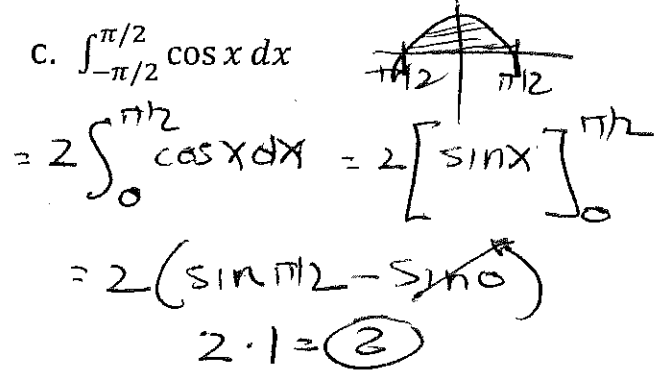 c. ∫_{-π/2}^{π/2} cos x dx
-π/2 π/2
= 2 ∫_0^{π/2} cos x dx = 2 [sin x]_0^{π/2}
= 2 (sin π/2 - sin 0)
2 · 1 = 2